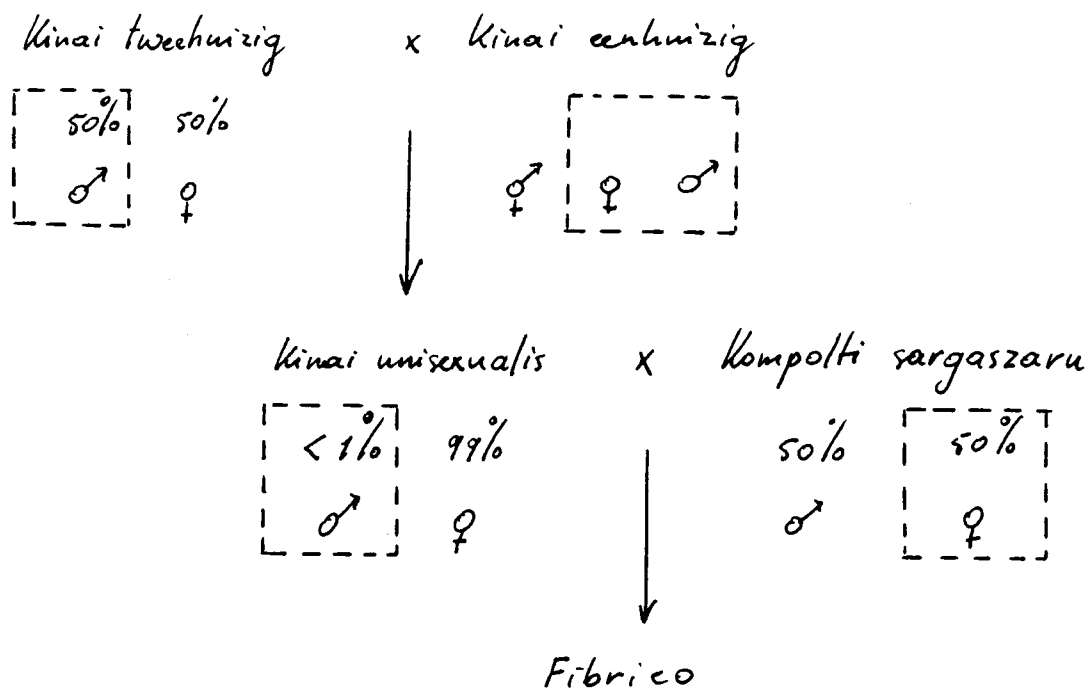 Kinai tweehuizig x Kinai eenhuizig
50% 50%
♂ ♀ ⚥ ♀ ♂
Kinai unisexualis x Kompolti sargaszaru
< 1% 99% 50% 50%
♂ ♀ ♂ ♀
Fibrico